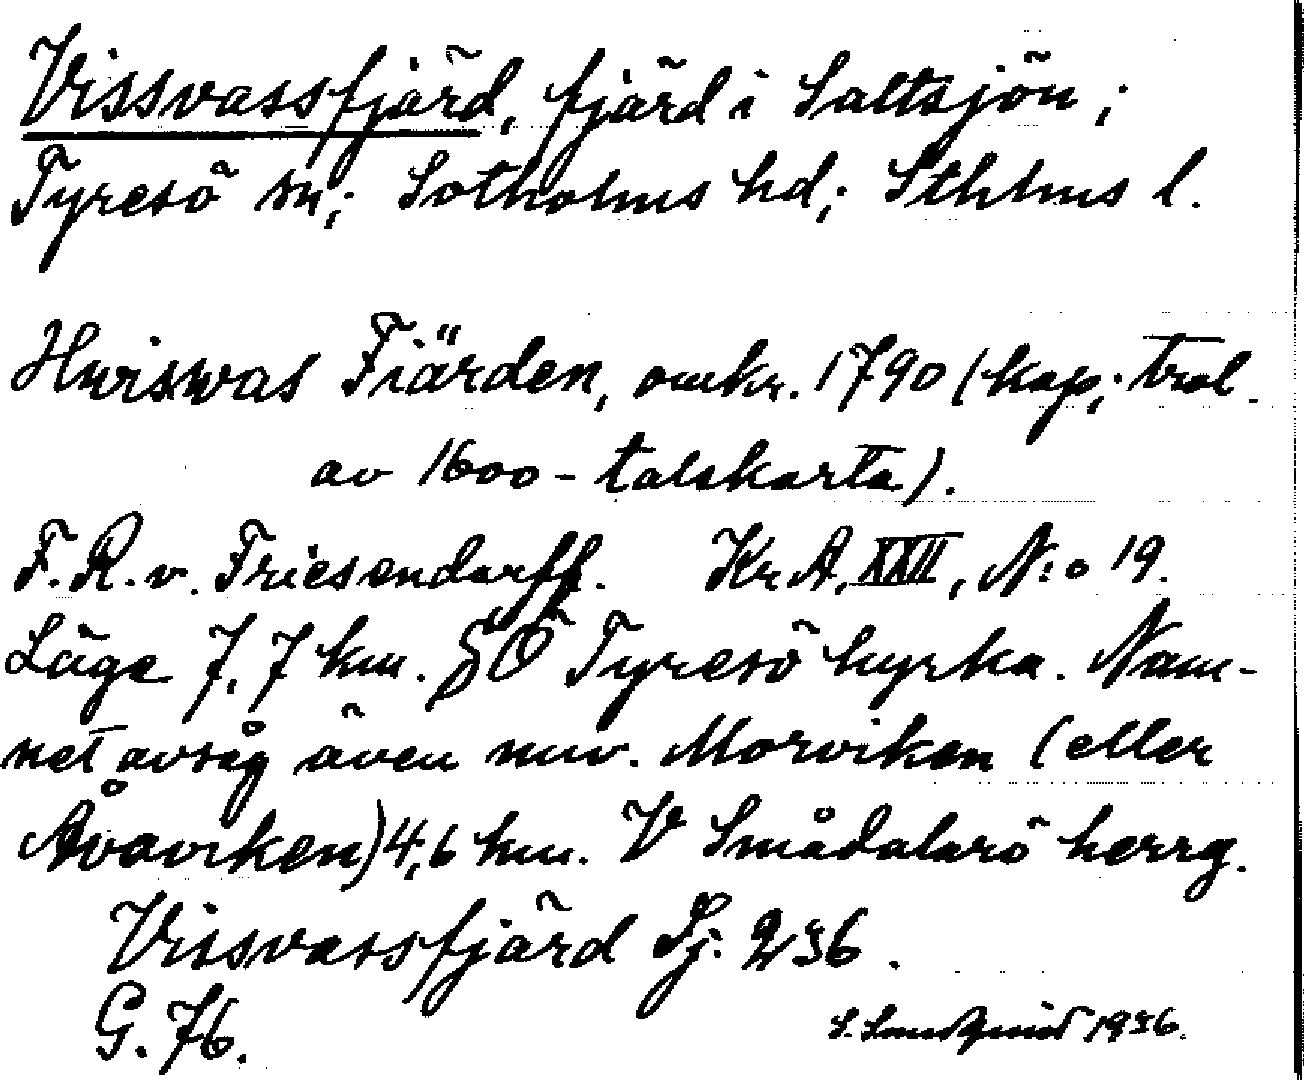 Vissvassfjärd, fjärd i Saltsjön;
Tyresö sn; Sotholms hd; Sthlms l.
Hwiswas Fiärden, omkr. 1790 (kop; trol.
av 1600-talskarta).
F.R.v. Friesendorff. Kr.A. XXII, N:o 19.
Läge 7,7 km. SO Tyresö kyrka. Nam-
net avsåg även nuv. Morviken (eller
Åvaviken) 4,6 km. V Smådalarö herrg.
Vissvassfjärd Sj. 236.
G. 76.
1936.